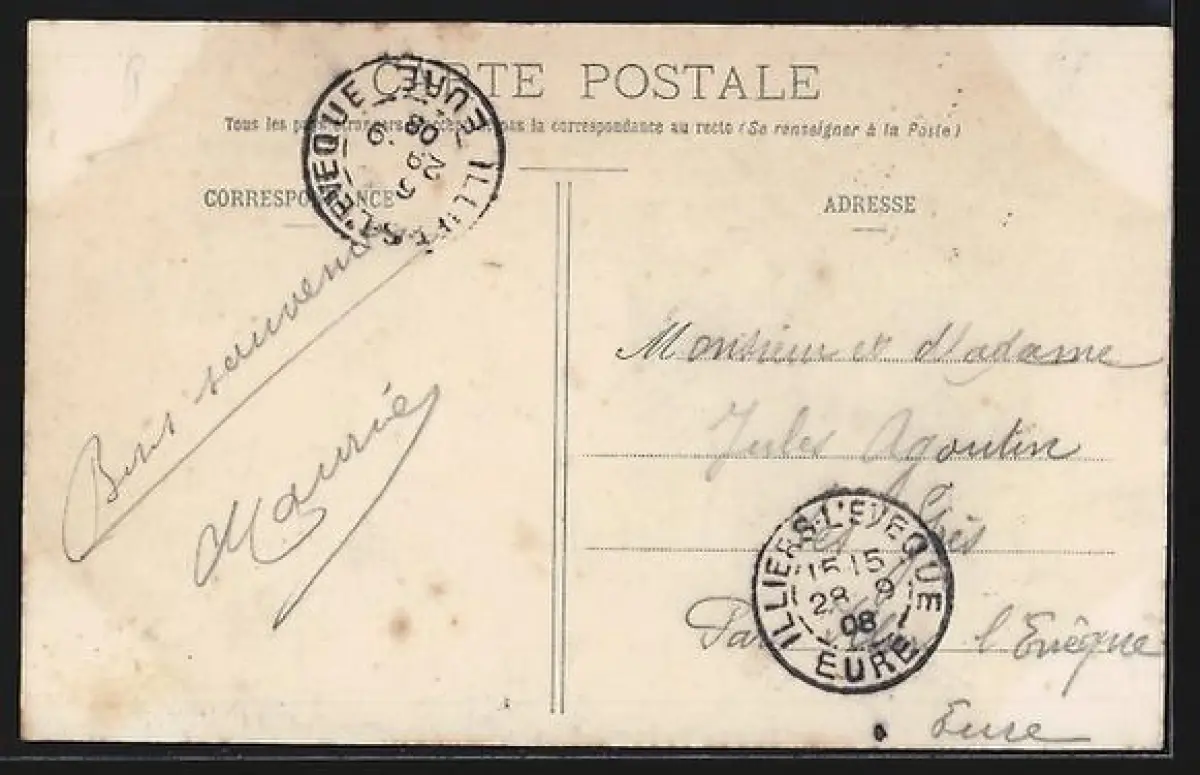 CARTE POSTALE
Tous les pays étrangers n'acceptent pas la correspondance au recto (Se renseigner à la Poste)
CORRESPONDANCE
ILLIERS-L'EVEQUE
29 9
08
EURE
Bons souvenirs
Maurice
ADRESSE
Monsieur et Madame
Jules Agoutin
Par l'Evêque
Eure
ILLIERS-L'EVEQUE
15 15
28 9
08
EURE